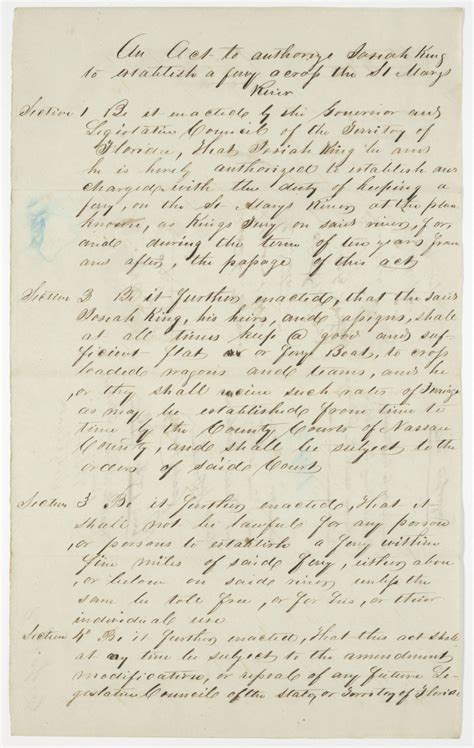 An Act to authorize Josiah King
to establish a fery across the St Marys
River
Section 1 Be it enacted by the Governor and
Legislative Council of the Territory of
Florida, That Josiah King be and
he is herely authorized to establish and
charged with the duty of keeping a
fery, on the St Marys River at the place
known, as Kings fery on said river, for,
and during the term of ten years from
and after, the passage of this act
Section 2 Be it further enacted, that the said
Josiah King, his heirs, and assigns, shall
at all times keep a good and suf-
ficient flat or fery Boat, to cross
loaded wagons and teams, and he
, or they shall recieve such rates of
as may be established from time to
time by the County Courts of Nassau
County, and shall be subject to the
orders of said Court
Section 3 Be it further enacted, That it
shall not be lawful for any person
, or persons to establish a fery within
five miles of said fery, either above
, or below on said river unless the
same be tole free, or for his, or their
individual use
Section 4 Be it further enacted, That this act shall
at any time be subject to the amendment
modification, or repeal of any future Le-
gislative Council of the state, or Territory of Florida